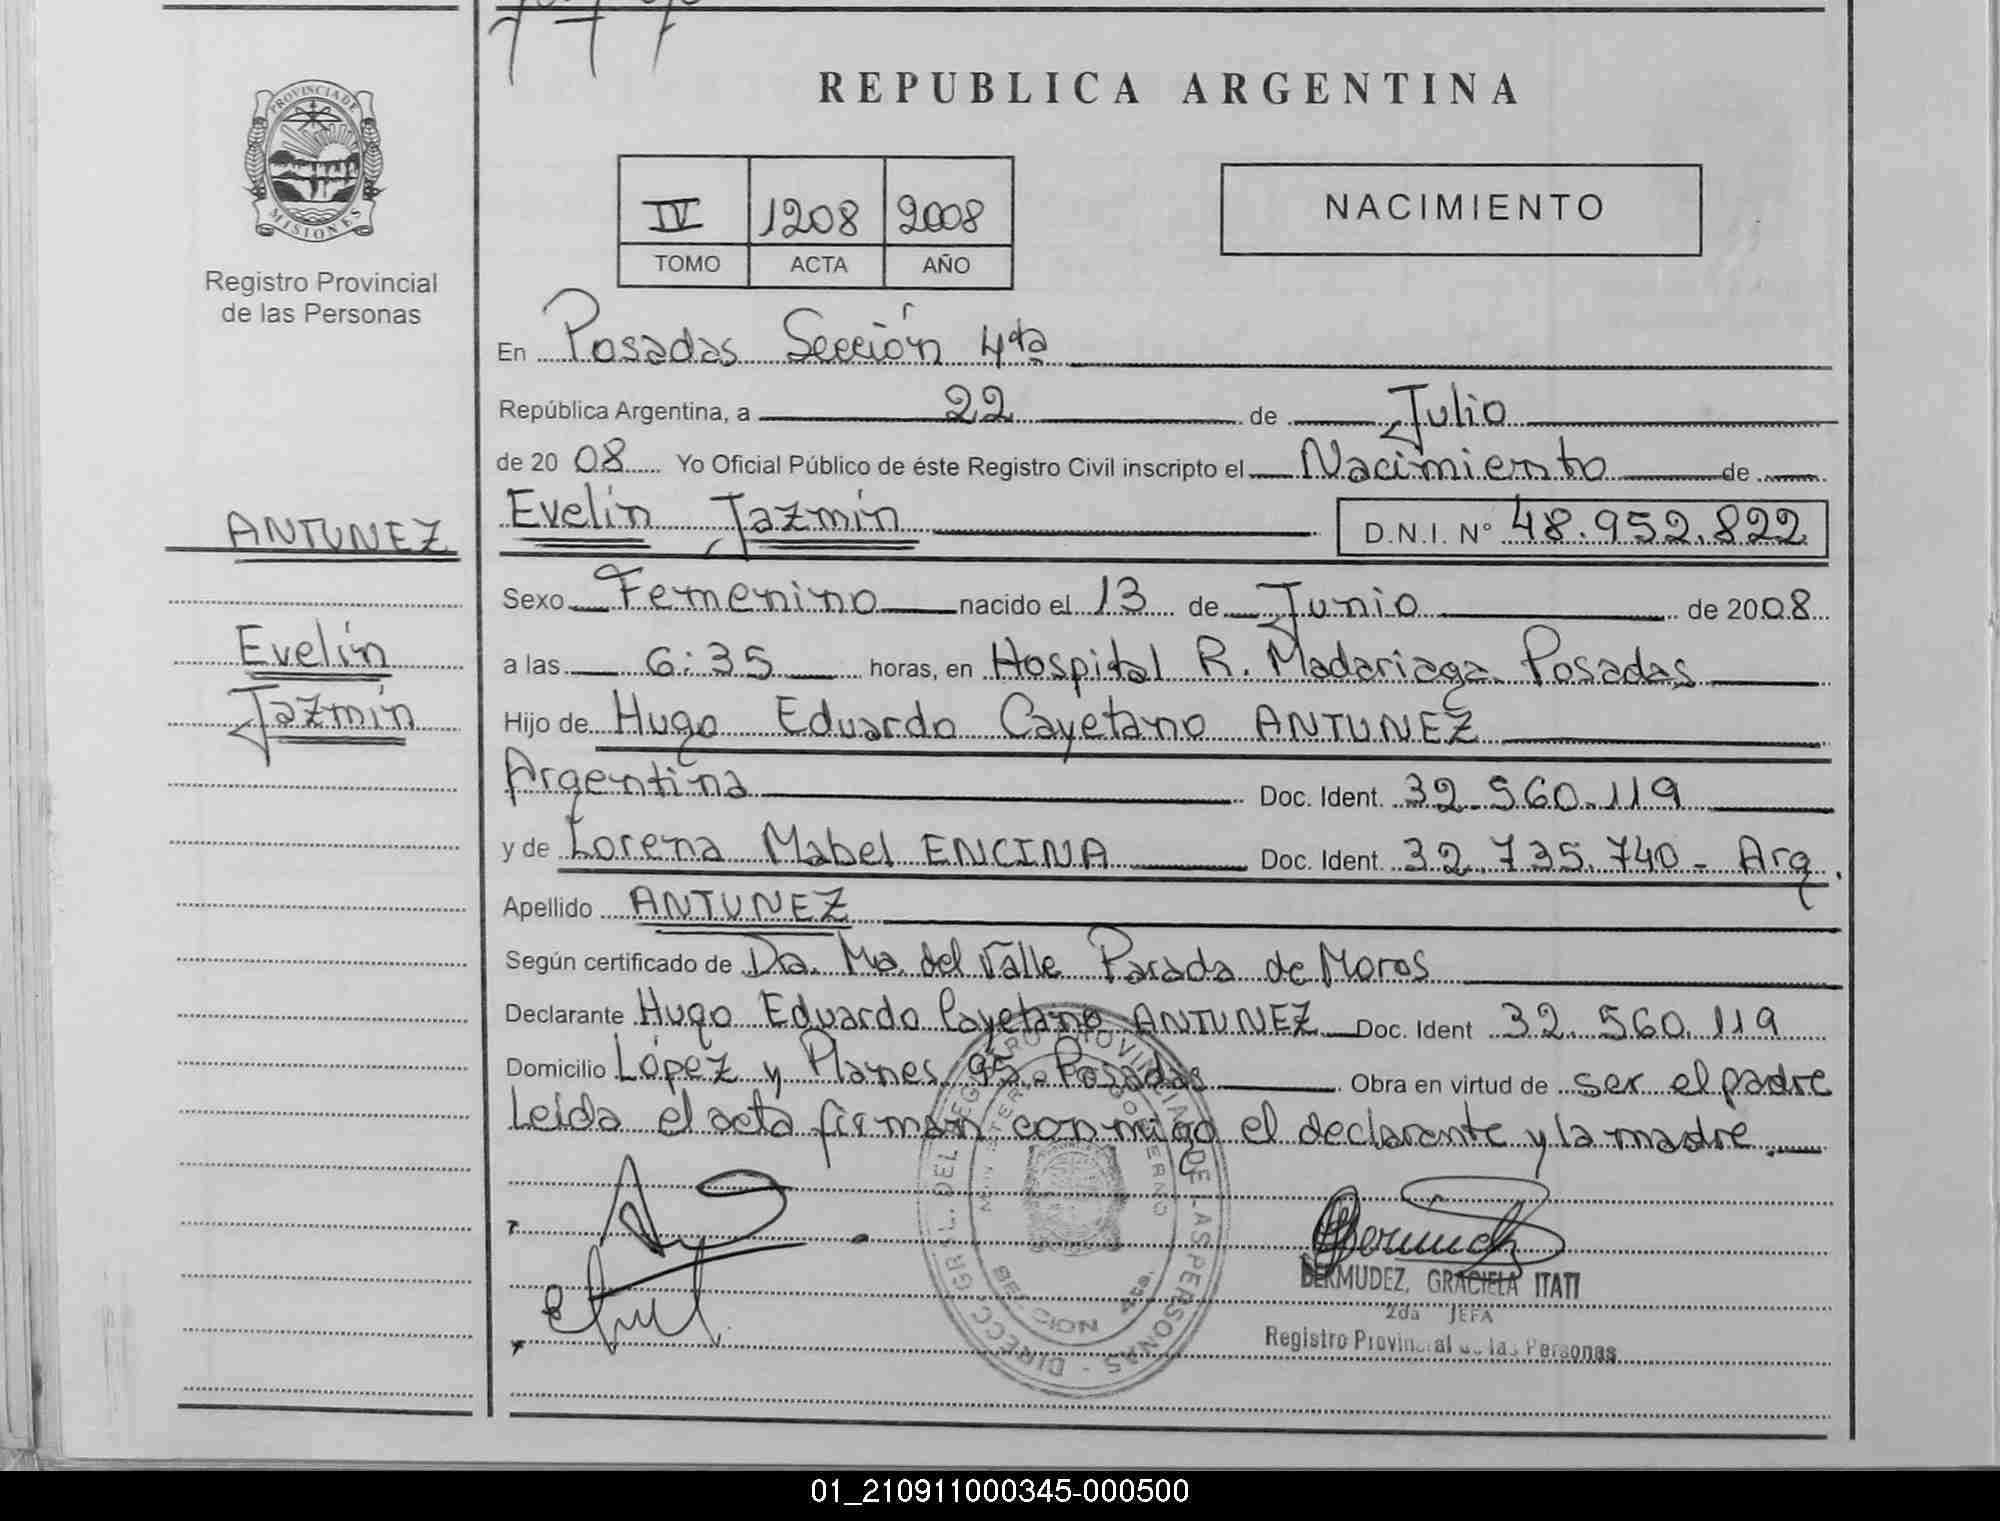 REPUBLICA ARGENTINA
PROVINCIA DE
MISIONES
Registro Provincial
de las Personas
IV 1208 2008
TOMO ACTA AÑO
NACIMIENTO
En Posadas Sección 4ta
República Argentina, a 22 de Julio
de 2008 Yo Oficial Público de éste Registro Civil inscripto el Nacimiento de
ANTUNEZ
Evelin Jazmín
Evelín Jazmín D.N.I. Nº 48.952.822
Sexo Femenino nacido el 13 de Junio de 2008
a las 6:35 horas, en Hospital R. Madariaga. Posadas
Hijo de Hugo Eduardo Cayetano ANTUNEZ
Argentina Doc. Ident. 32.560.119
y de Lorena Mabel ENCINA Doc. Ident. 32.735.740 - Arg.
Apellido ANTUNEZ
Según certificado de Dra. Ma. del Valle Parada de Moros
Declarante Hugo Eduardo Cayetano ANTUNEZ Doc. Ident 32.560.119
Domicilio López y Planes 95. Posadas Obra en virtud de ser el padre
Leída el acta firman conmigo el declarante y la madre.
DIRECC. GRAL. DEL REGISTRO PROVINCIAL DE LAS PERSONAS
SECCION 4ta.
BERMUDEZ, GRACIELA ITATI
2da JEFA
Registro Provincial de las Personas
01_210911000345-000500